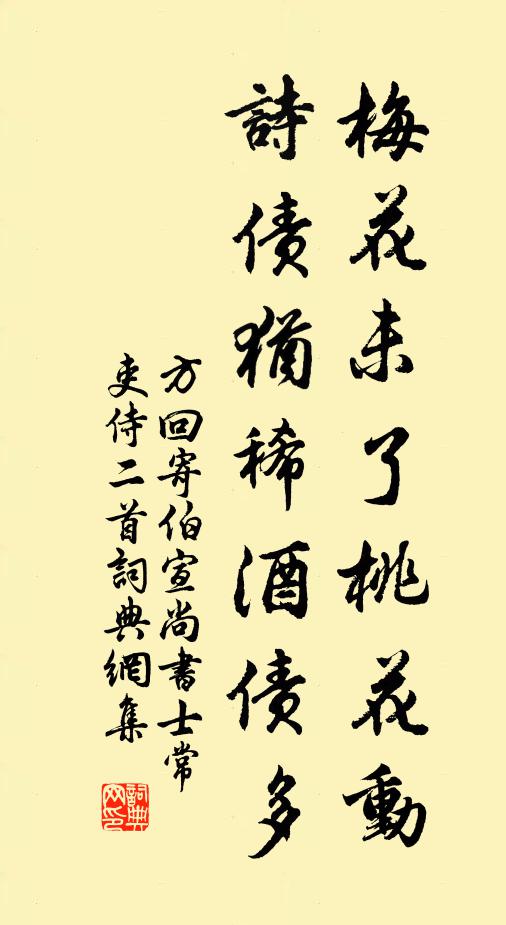 梅花未了桃花動
詩債猶稀酒債多
方回寄伯宣尚書士常
吏侍二首詞典網集
詞典網印